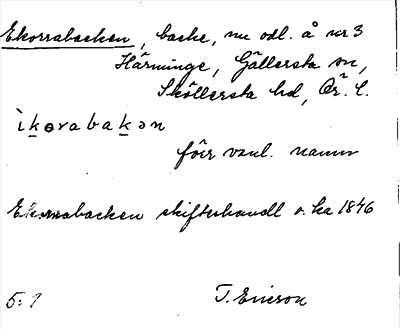 Ekorrabacken, backe, nu odl. å nr 3
Härminge, Gällersta sn,
Sköllersta hd, Ör. l.
ìkørabakən
förr vanl. namn
Ekorrabacken skifteshandl o. ka 1846
5:1
T. Ericson